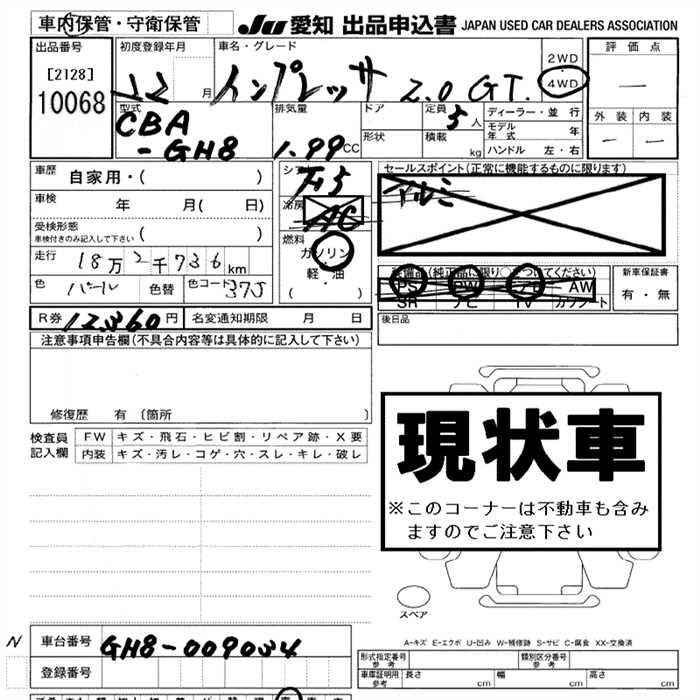 車内保管・守衛保管 JU 愛知 出品申込書 JAPAN USED CAR DEALERS ASSOCIATION
出品番号 初度登録年月 車名・グレード 評価点
[2128] 22 月 インプレッサ 2.0 GT. 2WD・4WD —
10068
型式 排気量 ドア 定員 5 人 ディーラー・並行 外装 内装
CBA 形状 積載 kg モデル年式 年 — —
-GH8 1.99 CC ハンドル 左・右
車歴 自家用・( ) シフト セールスポイント(正常に機能するものに限ります)
F5 アルミ
車検 年 月( 日) 冷房 AC
受検形態
車検付きのみ記入して下さい ( ) 燃料
ガソリン
走行 18万2千736km 軽・油
装備品(純正品に限り○をつけてください) 新車保証書
色 パール 色替 色コード 37J ( ) PS PW AW 有・無
SR ナビ TV カワシート
R券 12,360円 名変通知期限 月 日 後日品
注意事項申告欄(不具合内容等は具体的に記入して下さい)
修復歴 有 〔箇所 〕
現状車
※このコーナーは不動車も含み
ますのでご注意下さい
検査員 FW キズ・飛石・ヒビ割・リペア跡・X要
記入欄 内装 キズ・汚レ・コゲ・穴・スレ・キレ・破レ
スペア
N 車台番号 GH8-009034 A-キズ E-エクボ U-凹み W-補修跡 S-サビ C-腐食 XX-交換済
登録番号 形式指定番号 参考 類別区分番号 参考
車庫証明用 参考 長さ cm 幅 cm 高さ cm